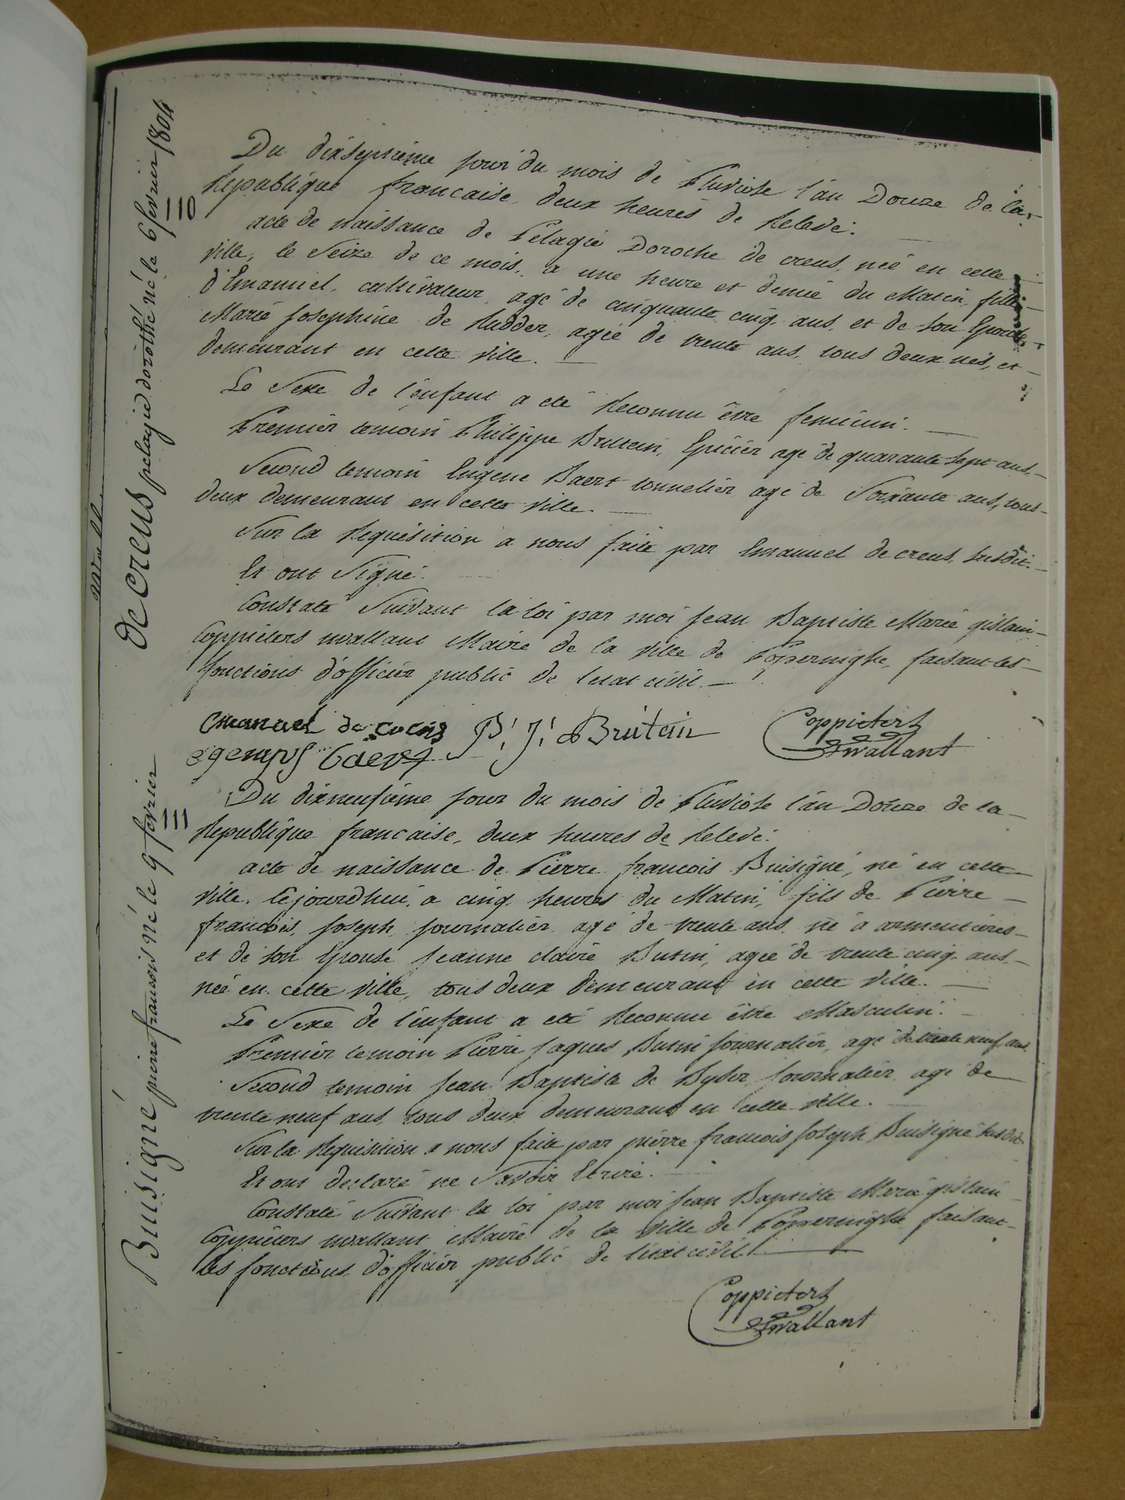 de Creus pelagie dorothé né le 6 fevrier 1804
110
Du dixseptieme jour du mois de Pluviose l'an Douze de la
Republique francaise, deux heures de Relevé.
acte de naissance de Pelagie Dorothe de creus, née en cette
ville, le Seize de ce mois, a une heure et demie du Matin, fille
d'Emanuel, cultivateur, agé de cinquante cinq ans, et de son Epouse
Marie Josephine de Rudder, agée de trente ans, tous deux nés, et
demeurant en cette ville.
Le Sexe de l'enfant a eté Reconnu être feminin.
Premier temoin Philippe Brutein, Epicier agé de quarante Sept ans
Second temoin Eugene Baert tonnelier agé de Soixante ans, tous
deux demeurant en cette ville.
Sur la Requisition a nous faite par Emanuel de creus, Susdit.
Et ont Signé.
Constaté Suivant la loi par moi Jean Baptiste Marie gislain
Coppieters wallant Maire de la ville de Poperinghe, faisant les
fonctions d'officier public de l'etat civil.
emanuel de P: J: Brutein Coppieters
wallant
Buisigné pierre francois né le 9 fevrier
111
Du dixneufième jour du mois de Pluviose l'an Douze de la
Republique francaise, deux heures de Relevé.
acte de naissance de Pierre francois Buisigné, né en cette
ville, cejourdhui, a cinq heures du Matin, fils de Pierre
francois Joseph journalier agé de trente ans, né à armentieres
et de son Epouse Jeanne claire Butin, agée de trente cinq ans
née en cette ville, tous deux demeurant en cette ville.
Le Sexe de l'enfant a eté Reconnu être Masculin.
Premier temoin Pierre Jaques Butin journalier, agé de trente neuf ans
Second temoin Jean Baptiste de Byser Journalier agé de
trente neuf ans, tous deux demeurant en cette ville.
Sur la Requisition a nous faite par pierre francois Joseph Buisigné Susdit
Et ont declaré ne Savoir Ecrire.
Constaté Suivant la loi par moi Jean Baptiste Marie gislain
Coppieters wallant Maire de la ville de Poperinghe faisant
les fonctions d'officier public de l'etat civil.
Coppieters
wallant